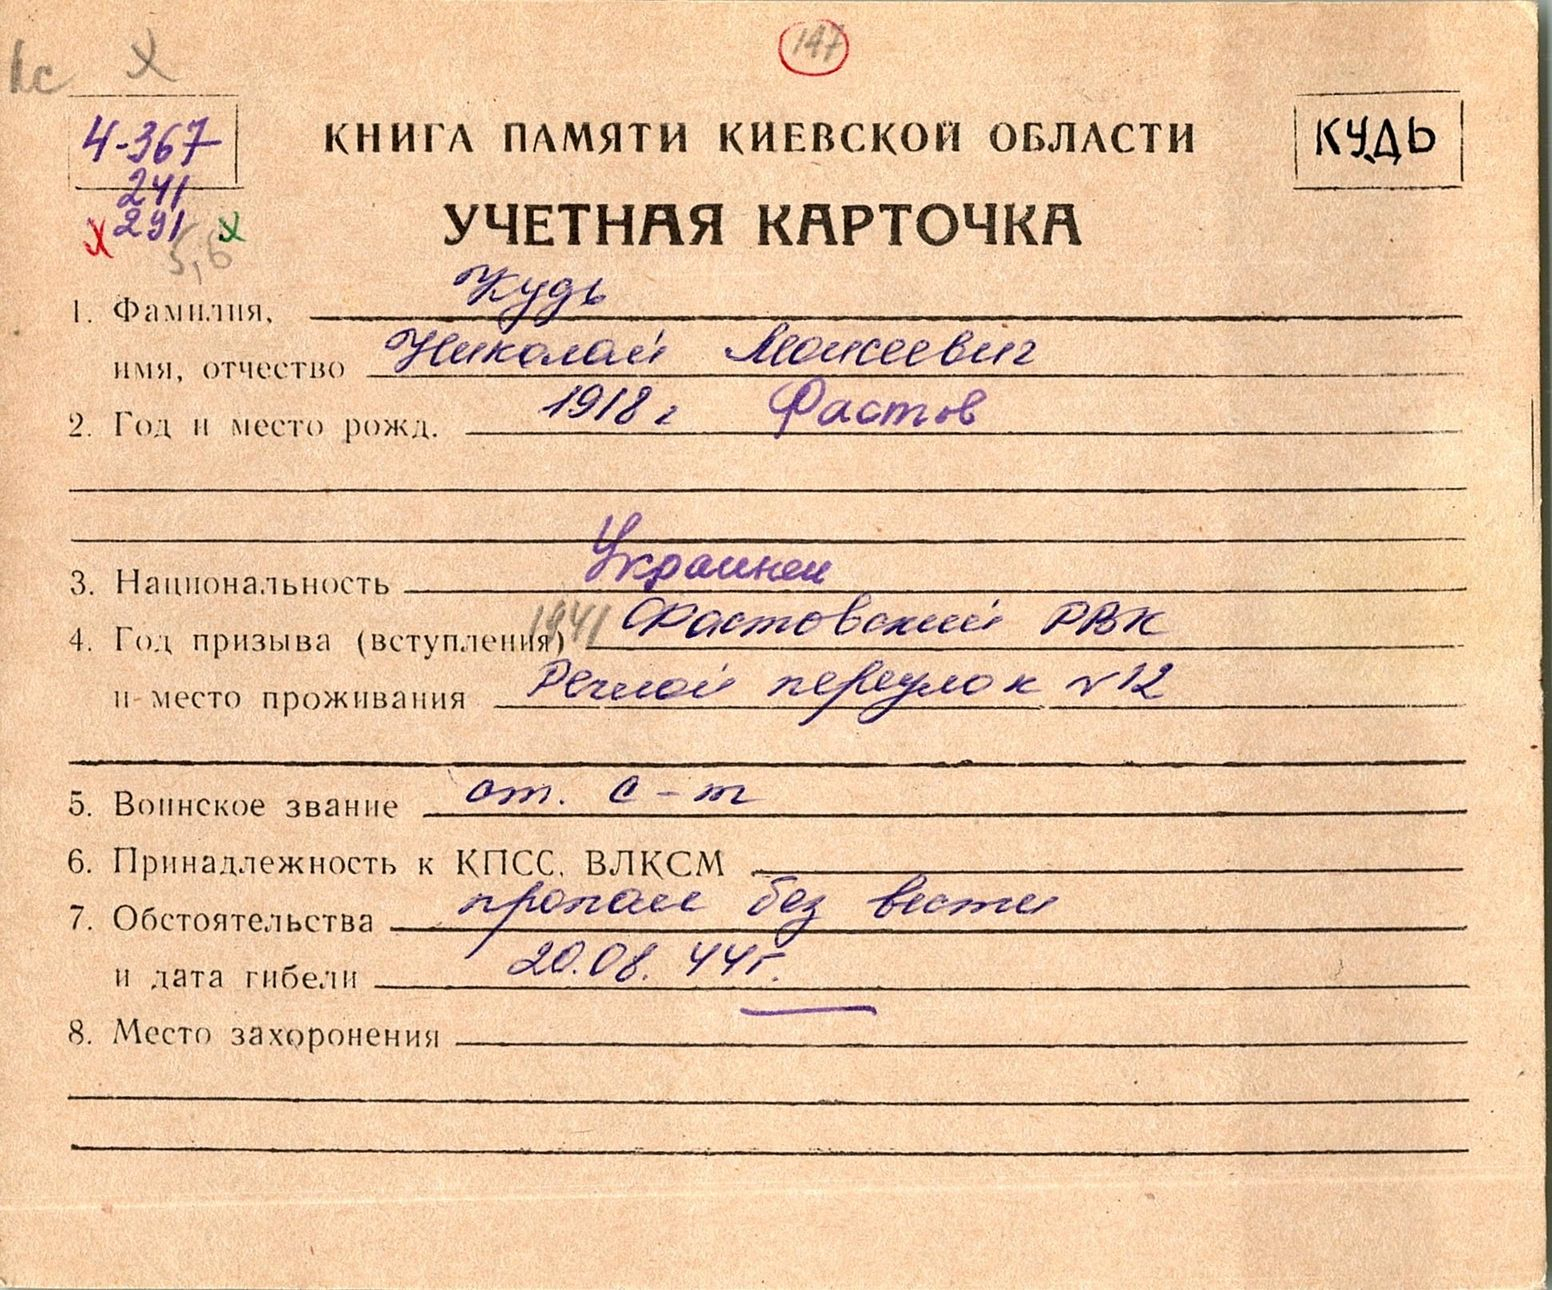 1с х
147
4-367
241
291
х х
5,6
КНИГА ПАМЯТИ КИЕВСКОЙ ОБЛАСТИ
КУДЬ
УЧЕТНАЯ КАРТОЧКА
1. Фамилия, Кудь
имя, отчество Николай Моисеевич
2. Год и место рожд. 1918 г Фастов
3. Национальность Украинец
4. Год призыва (вступления) 1941 Фастовский РВК
и место проживания Речной переулок №12
5. Воинское звание ст. с-т
6. Принадлежность к КПСС, ВЛКСМ
7. Обстоятельства пропал без вести
и дата гибели 20.08.44г.
8. Место захоронения